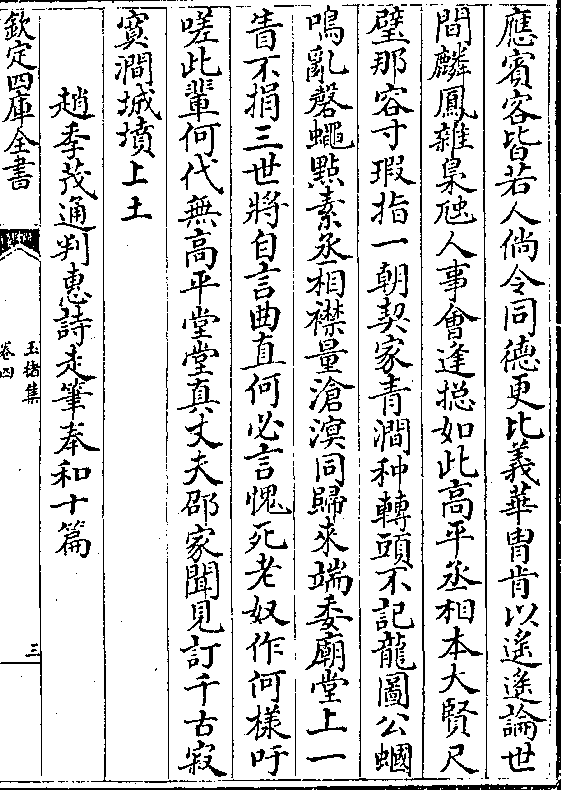 應賓客皆若人倘令同德更比義華冑肯以遙遙論世
間麟鳳雜梟虺人事會逢摠如此高平丞相本大賢尺
璧那容寸瑕指一朝契家青澗种轉頭不記龍圖公蟈
鳴亂磬蠅㸃素丞相襟量滄溟同歸來端委廟堂上一
眚不捐三世將自言曲直何必言愧死老奴作何様吁
嗟此輩何代無高平堂堂真丈夫邵家聞見訂千古寂
寞澗城墳上土
趙季茂通判惠詩走筆奉和十篇
欽定四庫全書
玉楮集
卷四
三